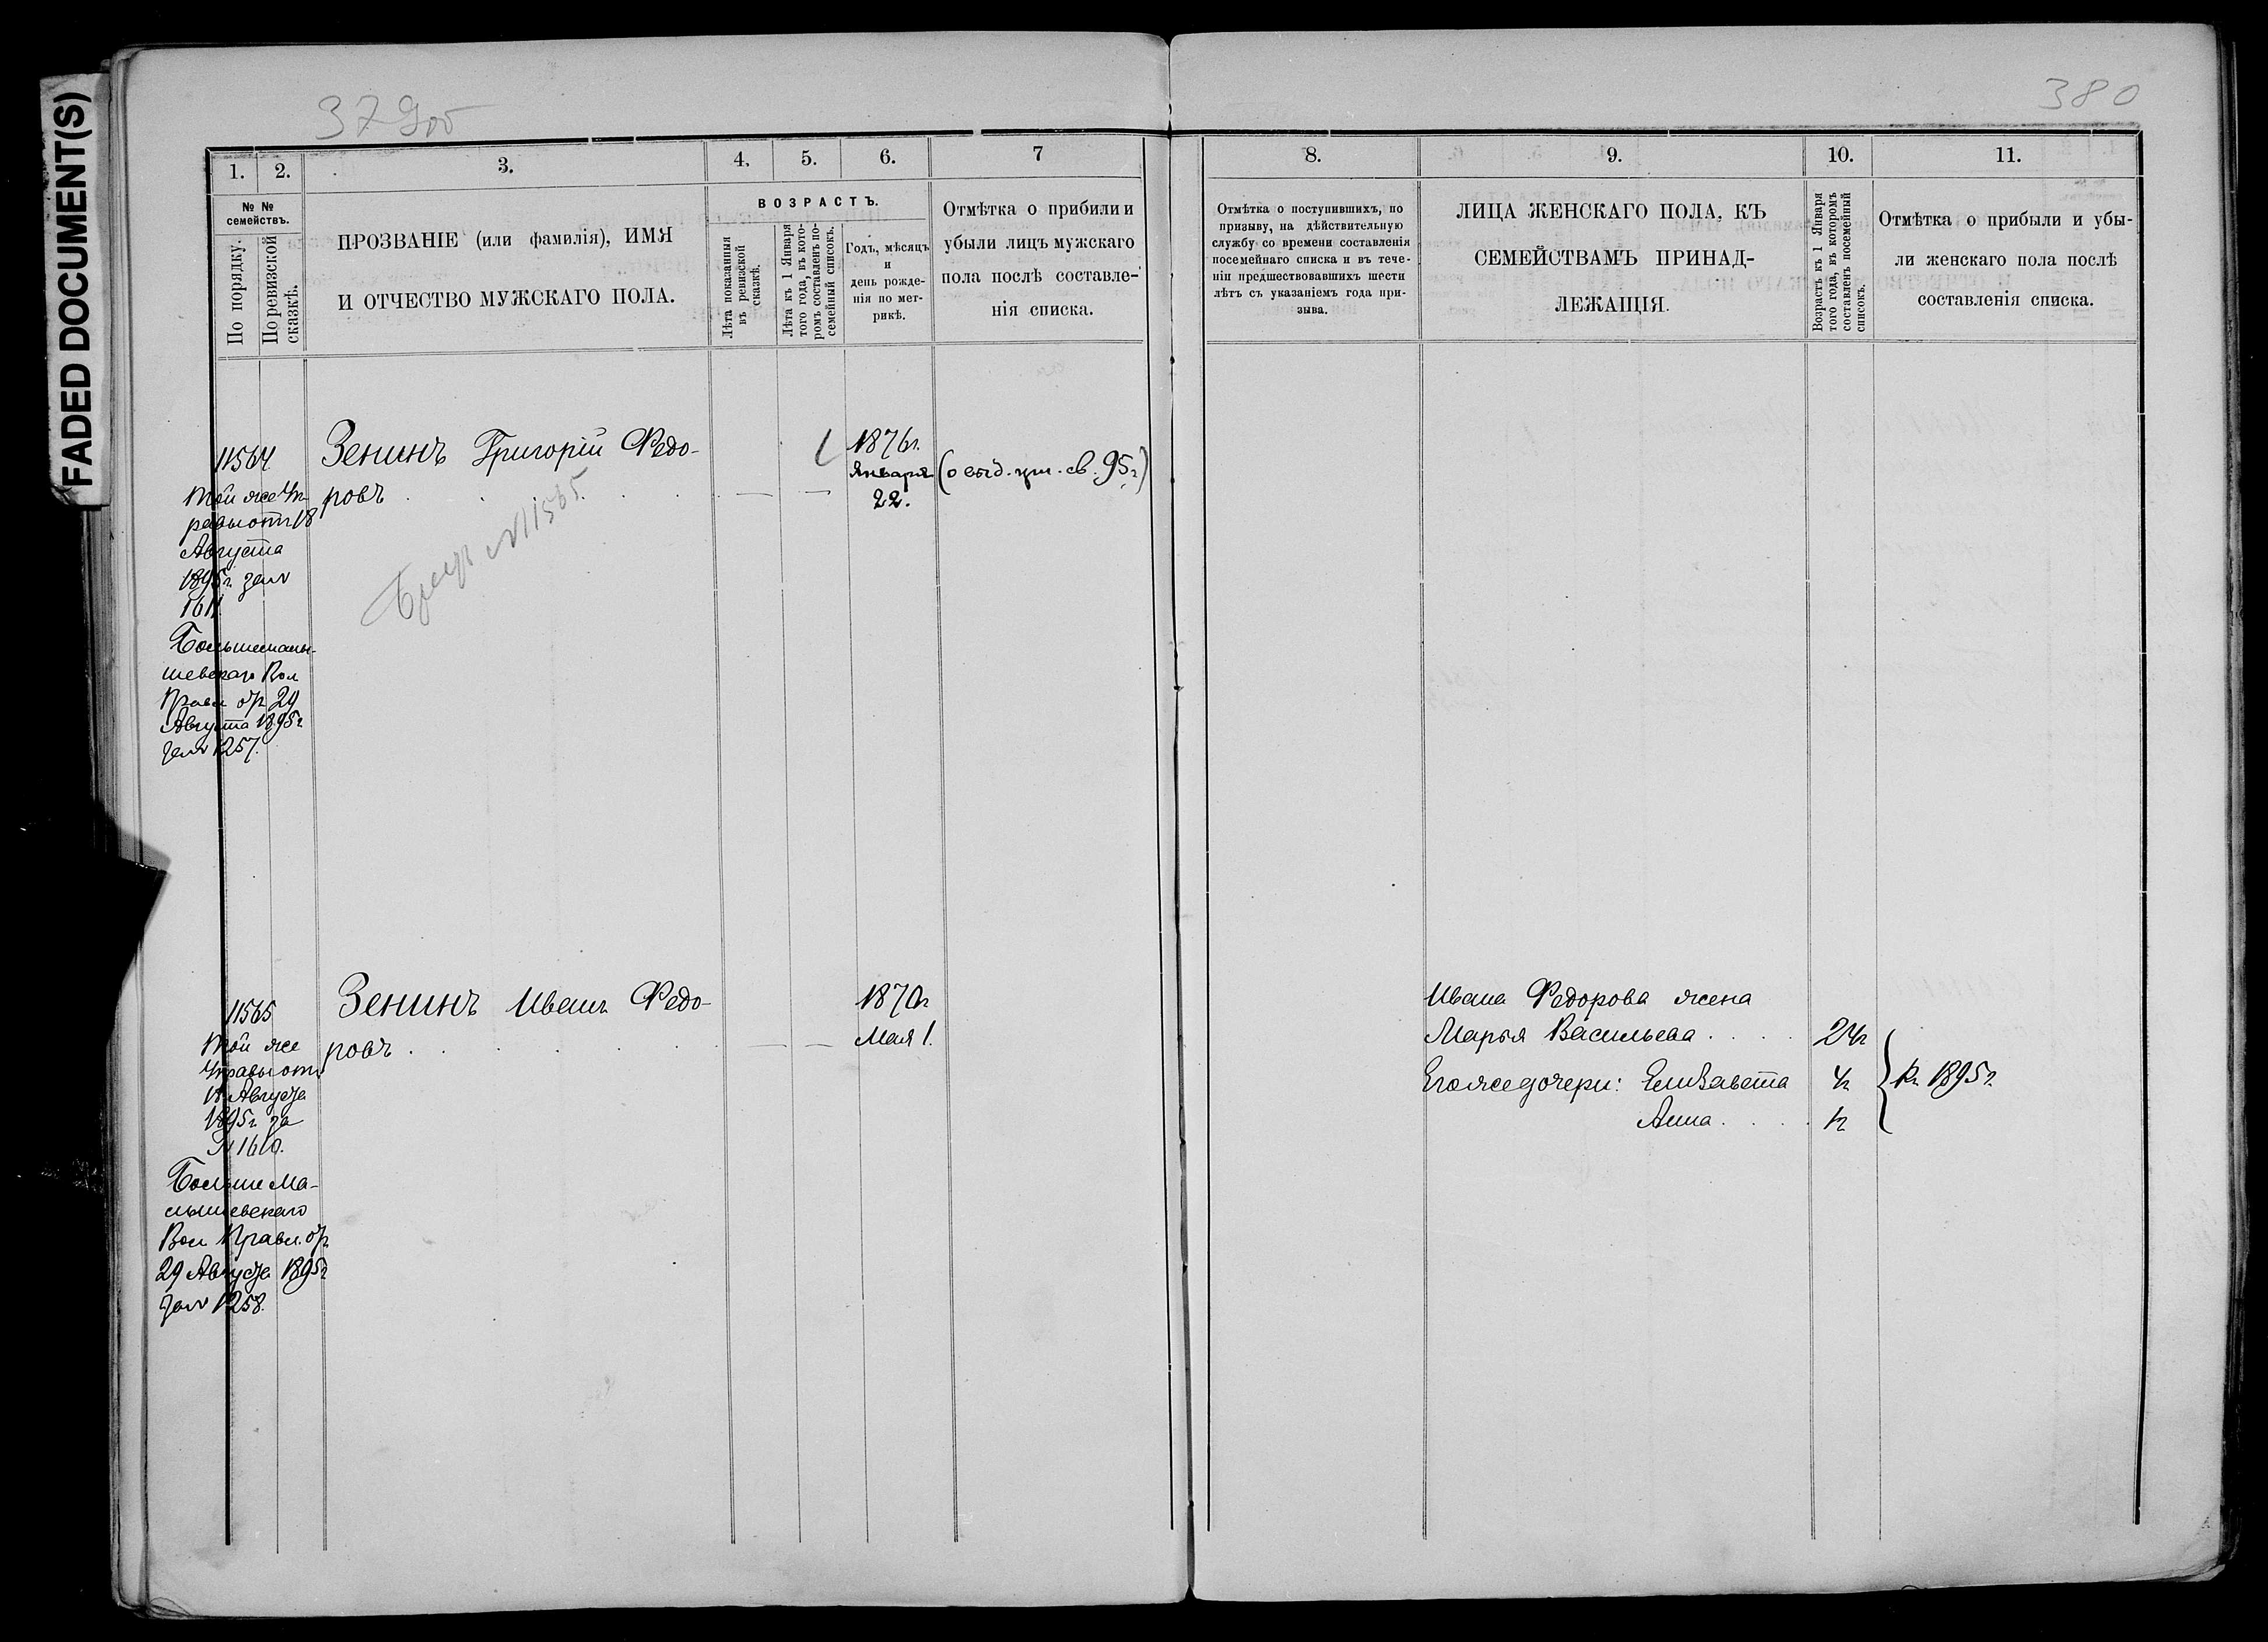 FADED DOCUMENT(S)
379об
380
1.
2.
3.
4.
5.
6.
7
№ №
семействъ.
По порядку.
По ревизской
сказкѣ.
ПРОЗВАНІЕ (или фамилія), ИМЯ
И ОТЧЕСТВО МУЖСКАГО ПОЛА.
ВОЗРАСТЪ.
Лѣта показанныя
въ ревизской
сказкѣ.
Лѣта къ 1 Января
того года, въ кото-
ромъ составленъ по-
семейный списокъ.
Годъ, мѣсяцъ
и
день рожде-
нія по мет-
рикѣ.
Отмѣтка о прибыли и
убыли лицъ мужскаго
пола послѣ составле-
нія списка.
8.
9.
10.
11.
Отмѣтка о поступившихъ, по
призыву, на дѣйствительную
службу со времени составленія
посемейнаго списка и въ тече-
ніи предшествовавшихъ шести
лѣтъ съ указаніемъ года при-
зыва.
ЛИЦА ЖЕНСКАГО ПОЛА, КЪ
СЕМЕЙСТВАМЪ ПРИНАД-
ЛЕЖАЩІЯ.
Возрастъ къ 1 Января
того года, въ которомъ
составленъ посемейный
списокъ.
Отмѣтка о прибыли и убы-
ли женскаго пола послѣ
составленія списка.
11564
Той же Уп-
равы отъ 18
Августа
1895г. за №
1611.
Большемалы-
шевскаго Вол
Правл. от 29
Августа 1895г
за № 1257.
Зенинъ Григорій Федо-
ровъ
1876г.
Января
22.
(о выд. . св. 95г.)
№ 11565
11565
Той же
Управы отъ
18 Августа
1895г. за
№ 1610.
Больше Ма-
лышевскаго
Вол Правл. от
29 Августа 1895г
за № 1258.
Зенинъ Иванъ Федо-
ровъ
1870г
Мая 1.
Ивана Федорова жена
Марья Васильева
24г
Его же дочери: Елизавета
4г
Анна
1г
къ 1895г.